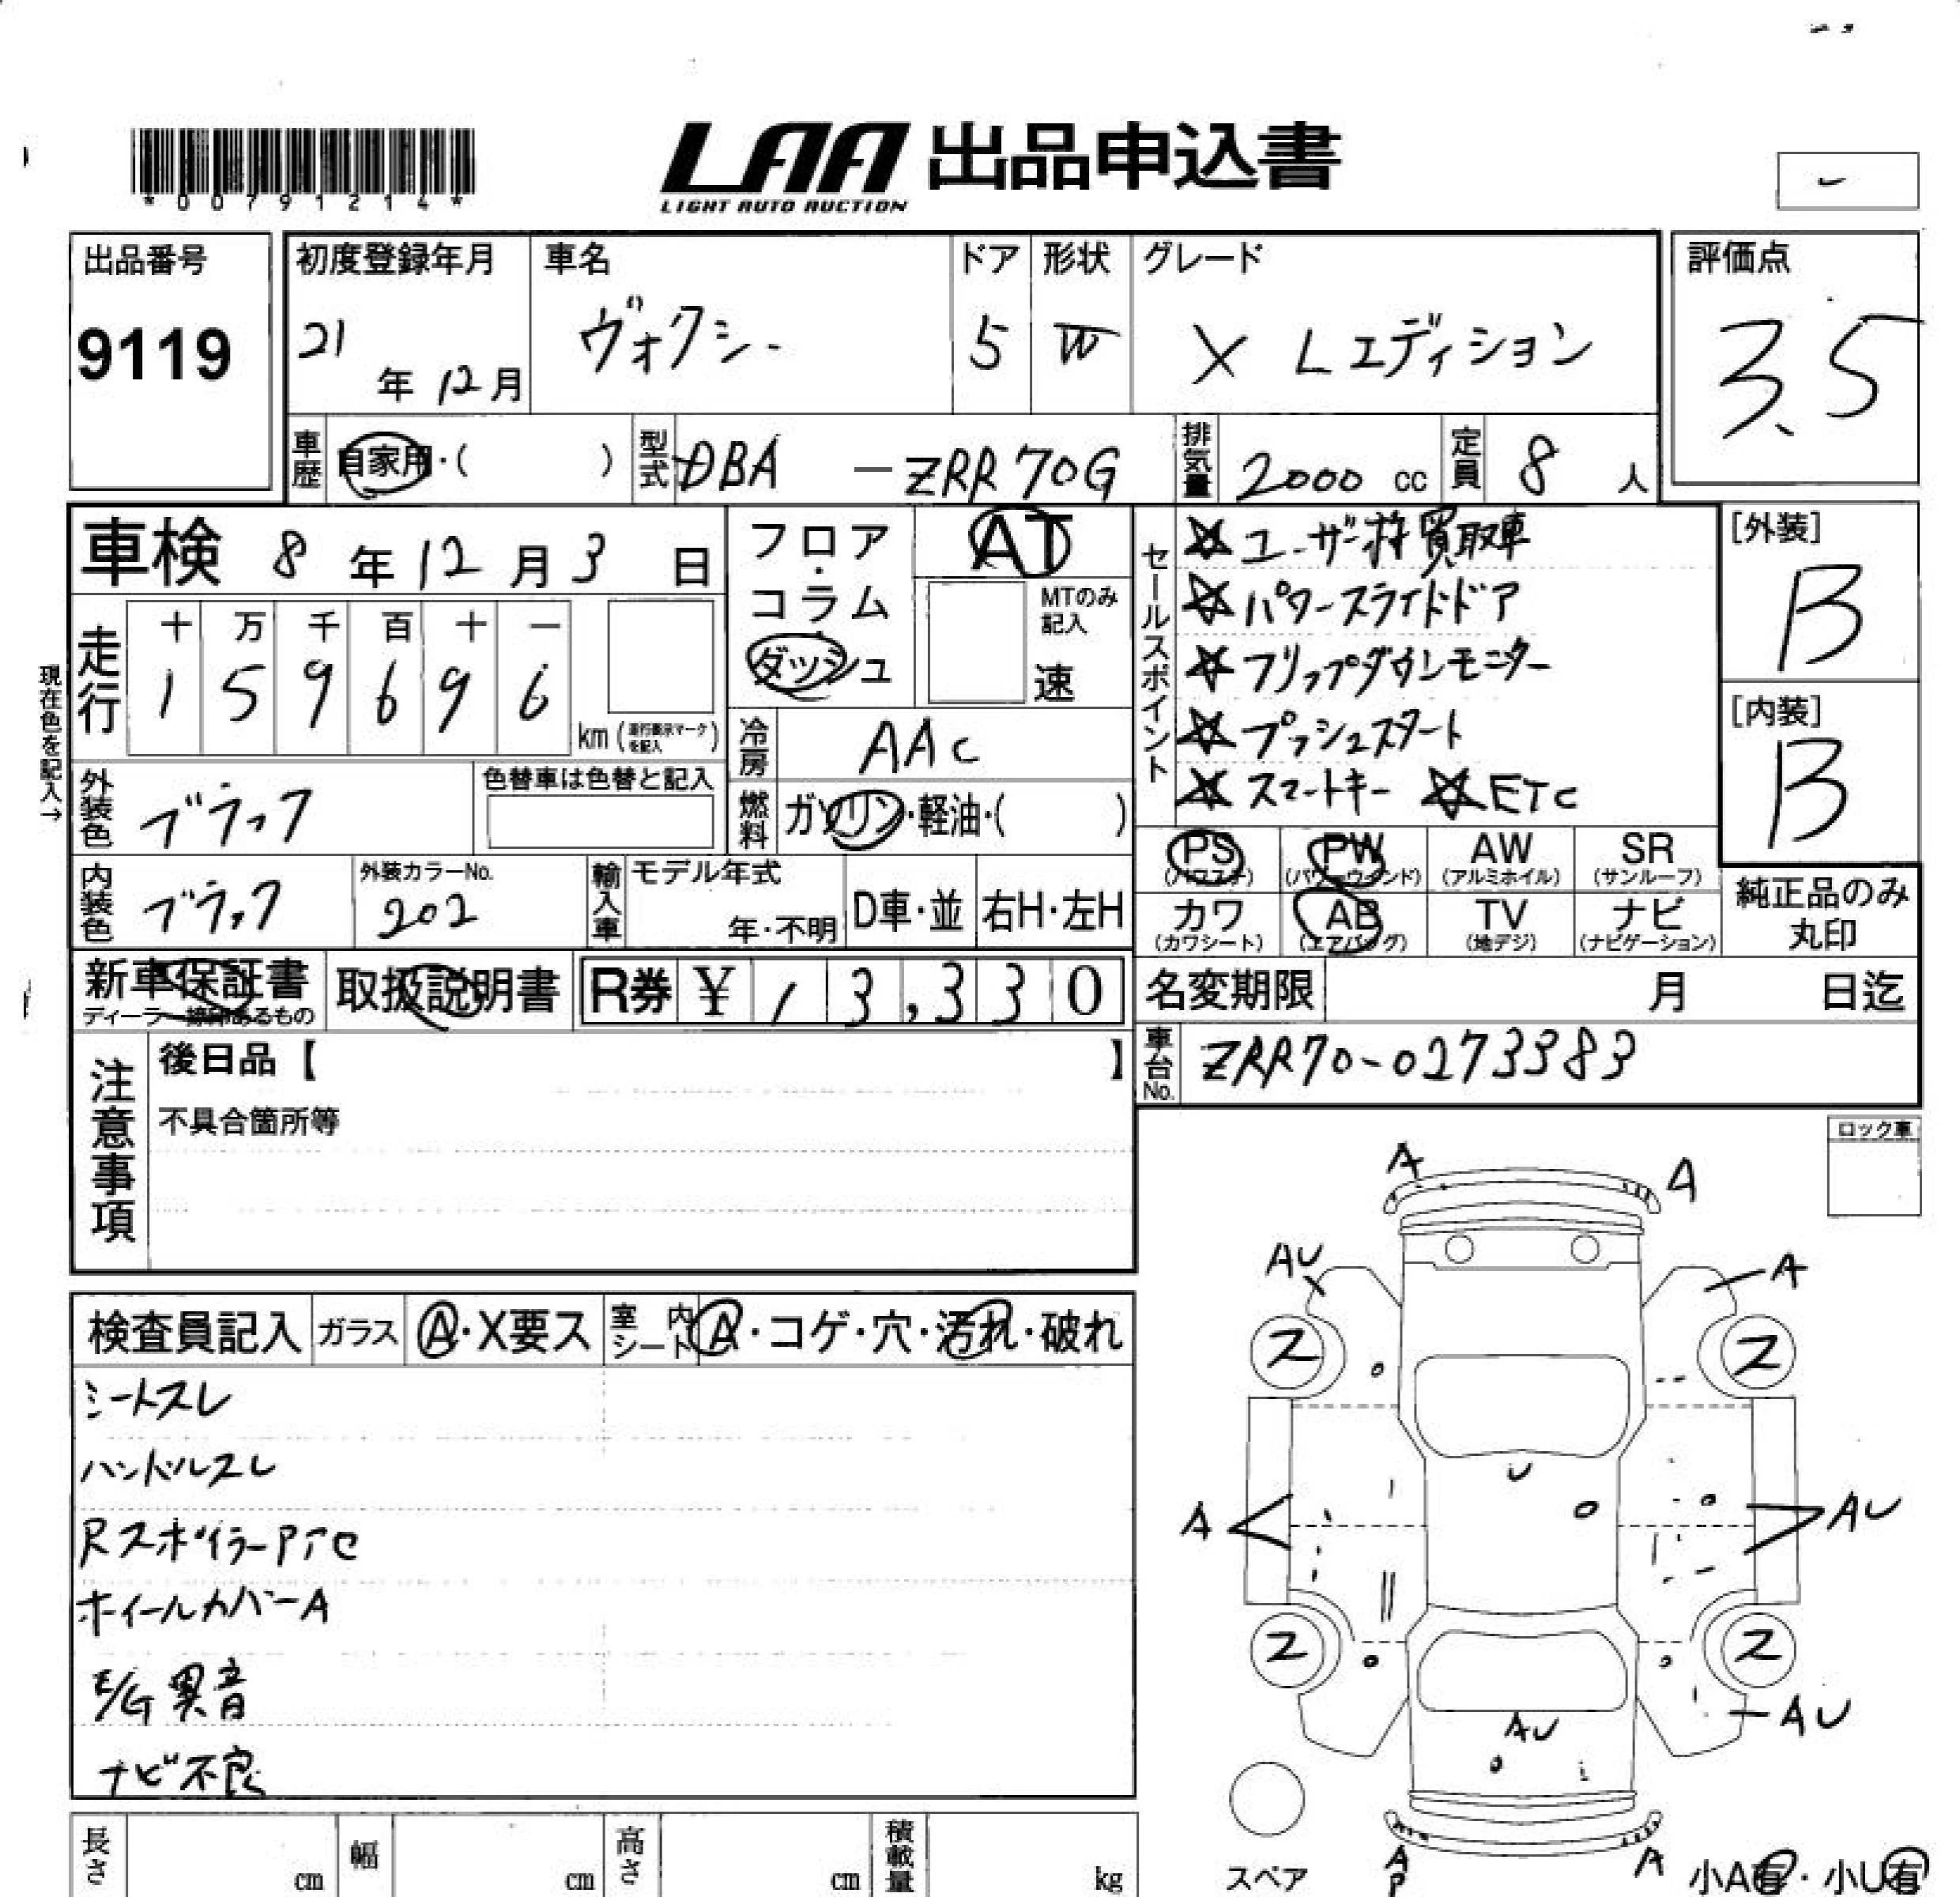 *00791214*
LAA 出品申込書
LIGHT AUTO AUCTION
出品番号
9119
初度登録年月
21年 12月
車名
ヴォクシー
ドア
5
形状
W
グレード
X Lエディション
評価点
3.5
車歴 自家用・( )
型式 DBA - ZRR70G
排気量 2000 cc
定員 8 人
車検 8年 12月 3日
フロア・コラム
ダッシュ
AT
MTのみ記入
速
セールスポイント
☆ユーザー様買取車
☆パワースライドドア
☆フリップダウンモニター
☆プッシュスタート
☆スマートキー ☆ETC
[外装]
B
[内装]
B
現在色を記入→
走行
十 万 千 百 十 一
1 5 9 6 9 6
km (走行表示マークを記入)
冷房 AAC
外装色 ブラック
色替車は色替と記入
燃料 ガソリン・軽油・( )
内装色 ブラック
外装カラーNo.
202
輸入車 モデル年式
年・不明
D車・並
右H・左H
PS (パワステ)
PW (パワーウインド)
AW (アルミホイル)
SR (サンルーフ)
カワ (カワシート)
AB (エアバッグ)
TV (地デジ)
ナビ (ナビゲーション)
純正品のみ丸印
新車保証書
ディーラー捺印あるもの
取扱説明書
R券 ¥ 13,330
名変期限 月 日迄
車台No. ZRR70-0273383
注意事項
後日品【 】
不具合箇所等
ロック車
検査員記入
ガラス A・X要ス
室内シート A・コゲ・穴・汚れ・破れ
シートスレ
ハンドルスレ
Rスポイラー
ホイールカバーA
E/G異音
ナビ不良
A A
AU A
2 2
U
A AU
2 2
AU
AU
A
P
A
スペア
小A有・小U有
長さ cm
幅 cm
高さ cm
積載量 kg